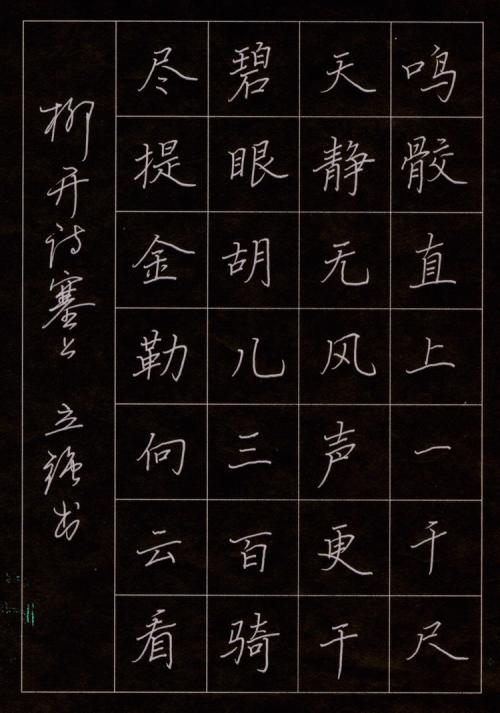 鸣骹直上一千尺
天静无风声更干
碧眼胡儿三百骑
尽提金勒向云看
柳开诗塞上 立强书